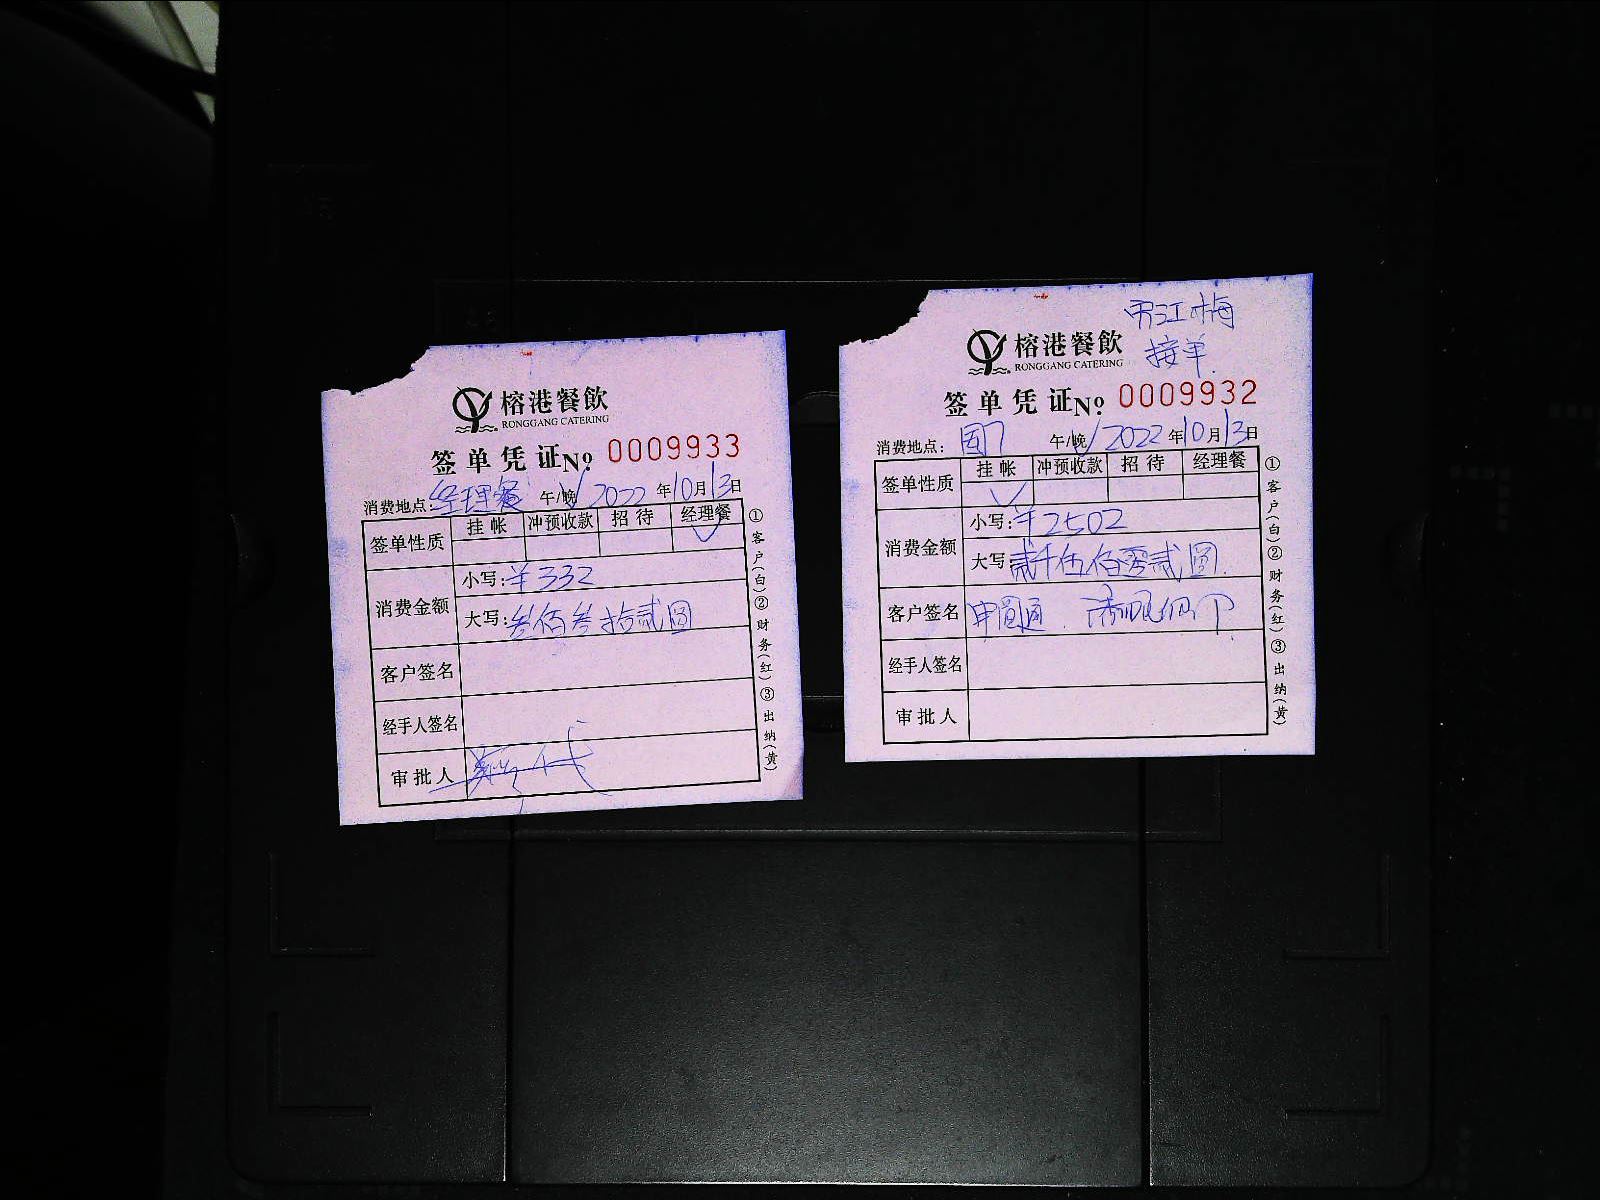 榕港餐飲
RONGGANG CATERING
签单凭证No 0009933
消费地点:经理餐 午/晚√ 2022年10月13日
签单性质 挂帐 冲预收款 招待 经理餐
√
消费金额 小写:¥332
大写:叁佰叁拾贰圆
客户签名
经手人签名
审批人
①客户(白)②财务(红)③出纳(黄)
江梅
榕港餐飲 接单
RONGGANG CATERING
签单凭证No 0009932
消费地点: 午/晚√ 2022年10月13日
签单性质 挂帐 冲预收款 招待 经理餐
√
消费金额 小写:¥2502
大写:贰仟伍佰零贰圆
客户签名 申圆通
经手人签名
审批人
①客户(白)②财务(红)③出纳(黄)